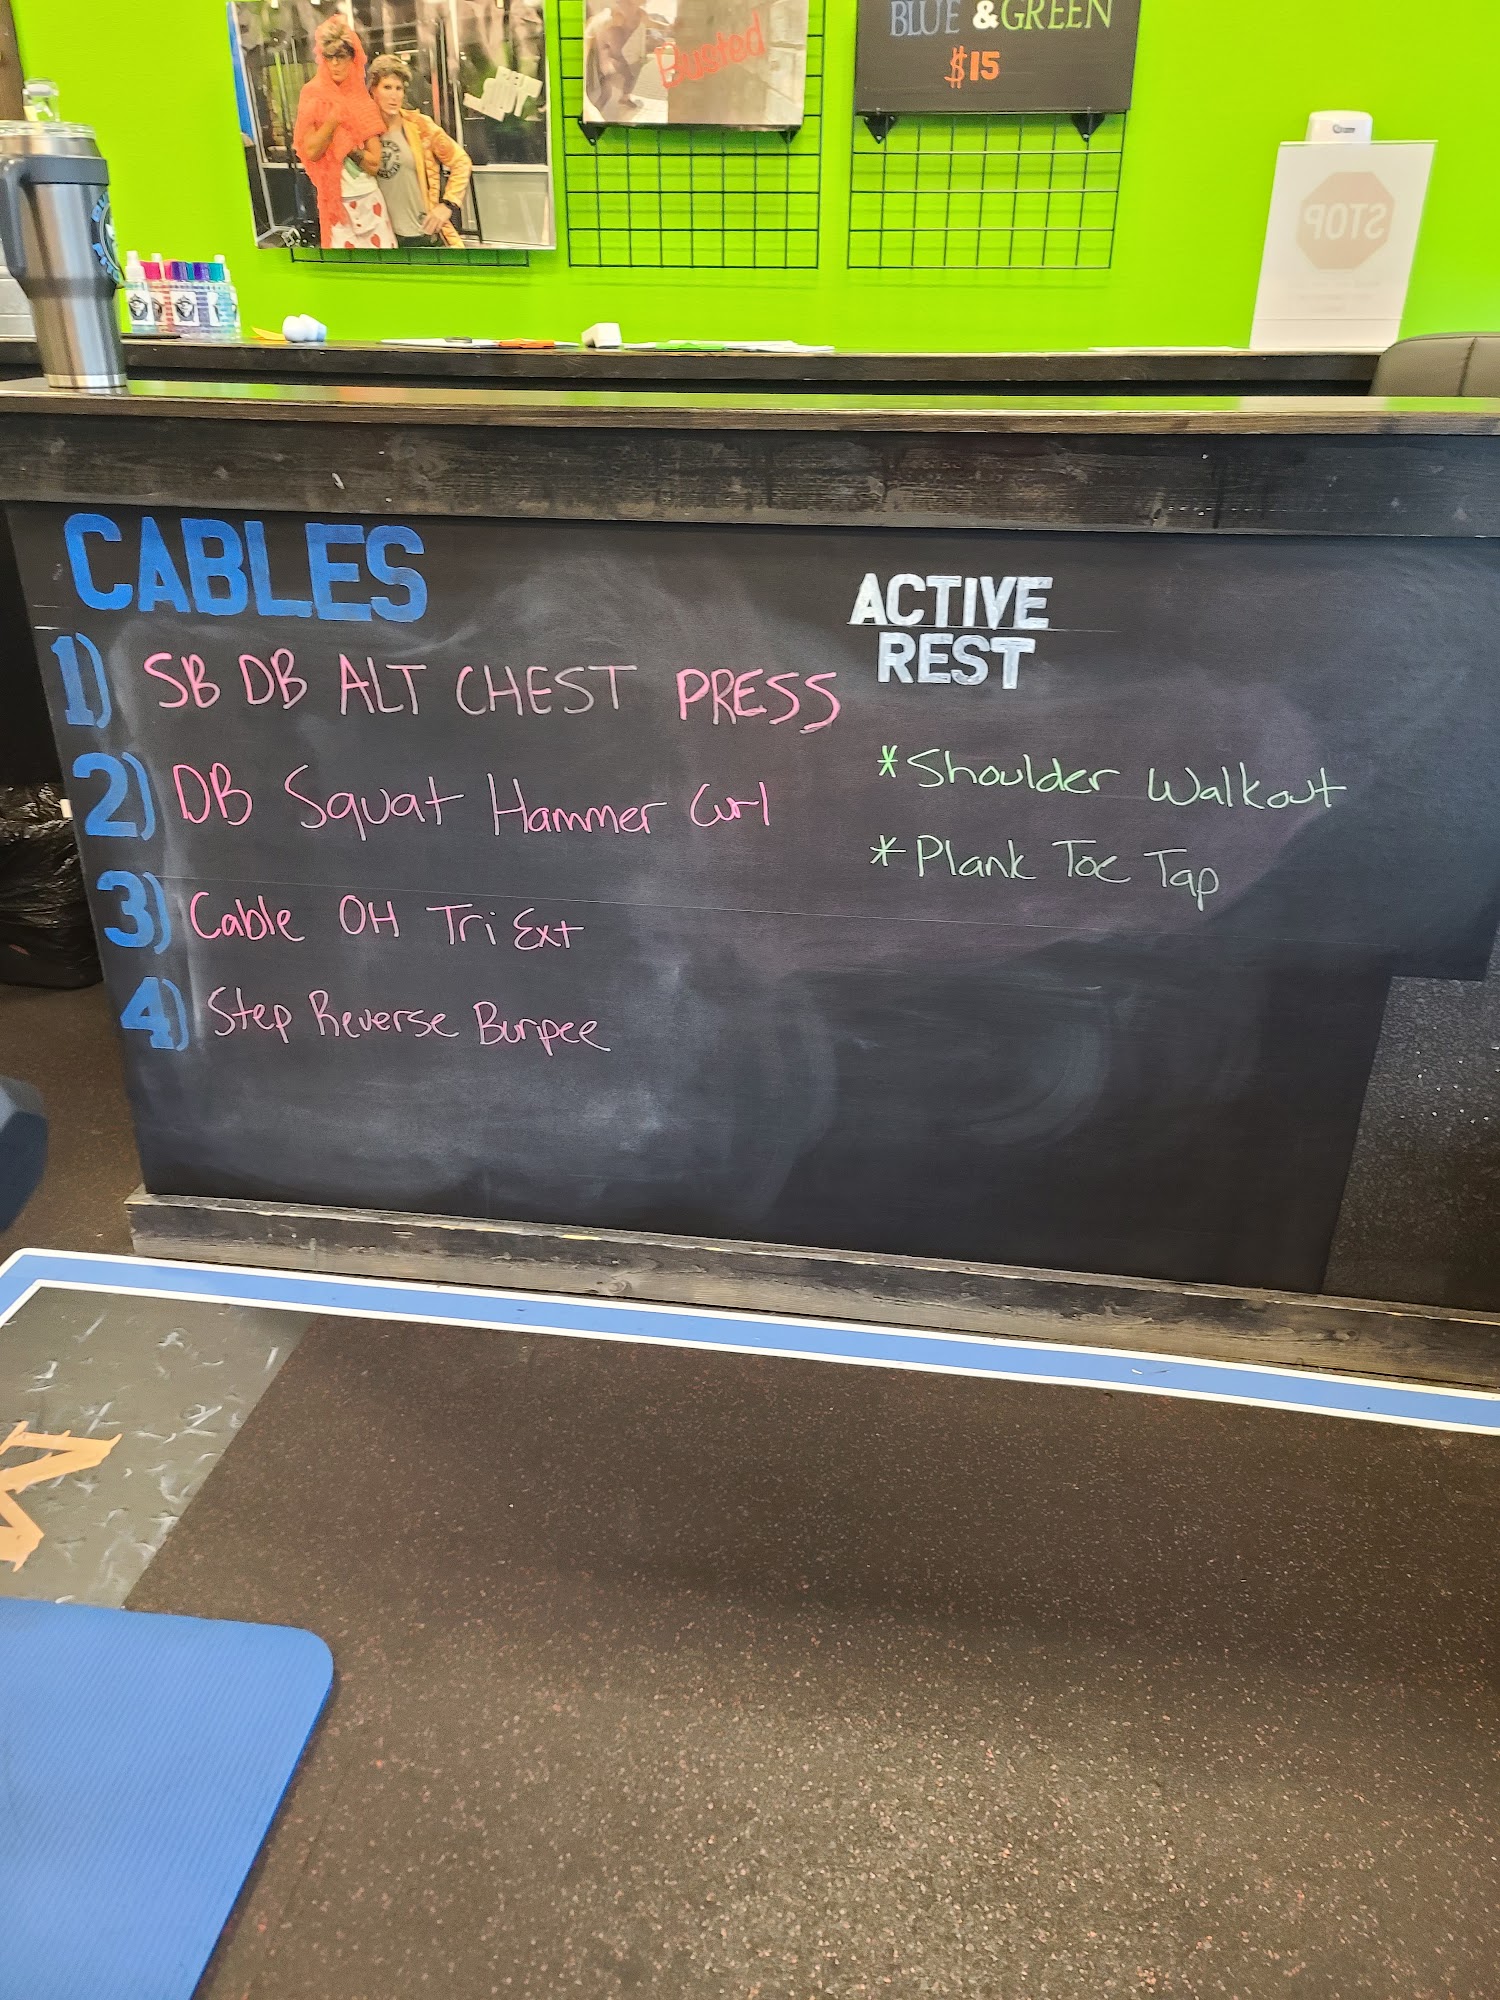 Busted
BLUE & GREEN
$15
STOP
CABLES
1) SB DB ALT CHEST PRESS
2) DB Squat Hammer Curl
3) Cable OH Tri Ext
4) Step Reverse Burpee
ACTIVE
REST
*Shoulder Walkout
*Plank Toe Tap